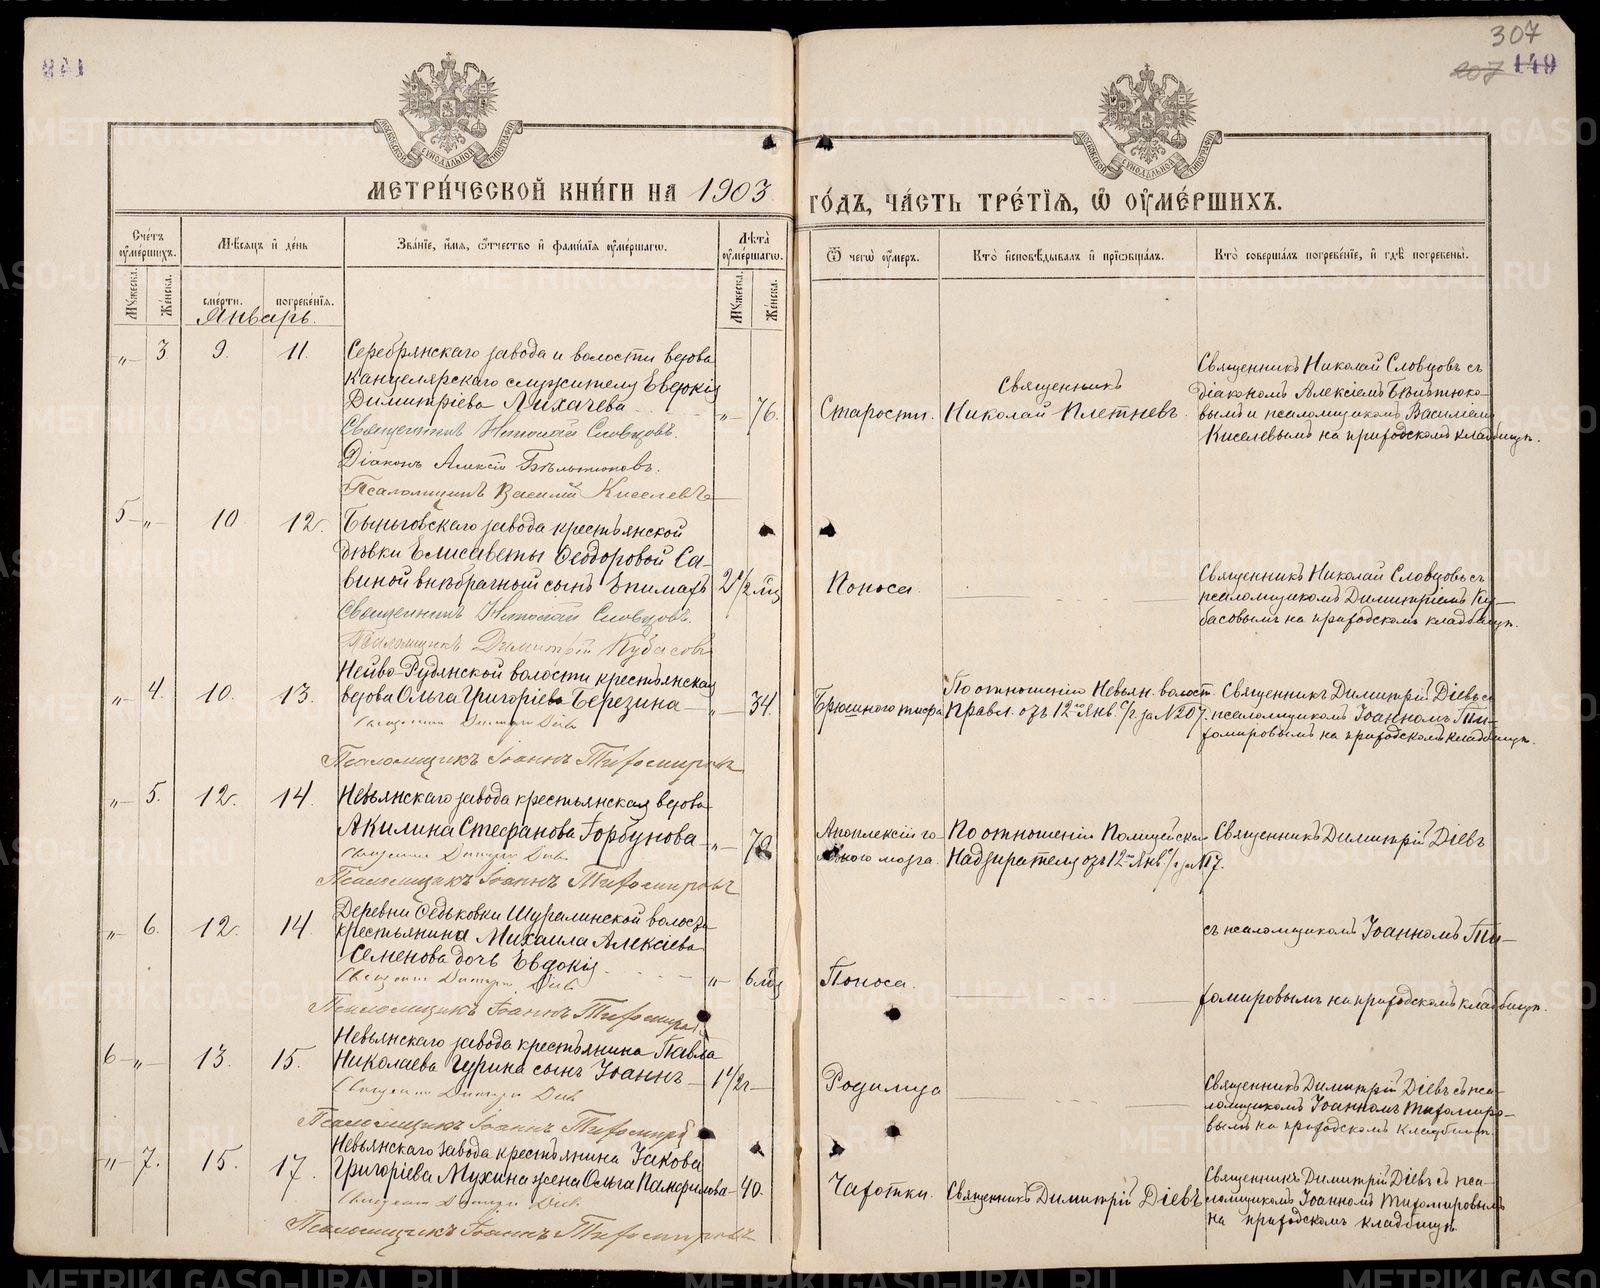 307
207 149
МЕТРИ́ЧЕСКОЙ КНИ́ГИ НА 1903
ГО́ДЪ, ЧА́СТЬ ТРЕ́ТІѦ, Ѡ҆ ОУ҆МЕ́РШИХЪ.
Сче́тъ оу҆ме́ршихъ.
Мѣ́сяцъ и҆ де́нь
Зва́нїе, и҆́мя, ѻ҆́тчество и҆ фами́лїя оу҆ме́ршагѡ.
Лѣ́та оу҆ме́ршагѡ.
Му́жеска.
Же́нска.
сме́рти.
погребе́нїя.
Му́жеска.
Же́нска.
Ѿ чегѡ̀ оу҆́меръ.
Кто̀ и҆сповѣ́дывалъ и҆ прїѡбща́лъ.
Кто̀ соверша́лъ погребе́нїе, и҆ гдѣ̀ погребены̀.
Январь.
„ 3 9. 11. Серебрянскаго завода и волости вдова
канцелярскаго служителя Евдокія
Димитріева Лихачева „ 76.
Священникъ Николай Словцовъ.
Діаконъ Алексій Бѣльтюковъ.
Псаломщикъ Василій Киселевъ
Старости.
Священникъ
Николай Плетневъ
Священникъ Николай Словцовъ съ
діакономъ Алексіемъ Бѣльтюко-
вымъ и псаломщикомъ Василіемъ
Киселевымъ на приходскомъ кладбищѣ.
5 „ 10 12. Быньговскаго завода крестьянской
дѣвки Елисаветы Ѳеодоровой Са-
виной внѣбрачный сынъ Епимахъ 2 1/2 мц
Священникъ Николай Словцовъ.
Псаломщикъ Димитрій Кубасовъ
Поноса.
Священникъ Николай Словцовъ съ
псаломщикомъ Димитріемъ Ку-
басовымъ на приходскомъ кладбищѣ.
„ 4. 10. 13. Нейво-Рудянской волости крестьянская
вдова Ольга Григоріева Березина „ 34.
Священникъ Димитрій Діевъ
Псаломщикъ Іоаннъ Тихомировъ
Брюшного тифа
По отношенію Невьян. волост.
Правл. отъ 12го Янв. с/г за №207.
Священникъ Димитрій Діевъ съ
псаломщикомъ Іоанномъ Ти-
хомировымъ на приходскомъ кладбищѣ.
„ 5. 12. 14. Невьянскаго завода крестьянская вдова
Акилина Стефанова Горбунова „
Священникъ Димитрій Діевъ
Псаломщикъ Іоаннъ Тихомировъ
Апоплексіи го-
ловного мозга.
По отношенію Полицейскаго
Надзирателя отъ 12го Янв. с/г за №17.
Священникъ Димитрій Діевъ
„ 6. 12. 14. Деревни Ѳедьковки Шуралинской волости
крестьянина Михаила Алексіева
Семенова дочь Евдокія. „ 6 мц
Священникъ Димитрій Діевъ
Псаломщикъ Іоаннъ Тихомировъ
Поноса.
съ псаломщикомъ Іоанномъ Ти-
хомировымъ на приходскомъ кладбищѣ.
6 „ 13. 15. Невьянскаго завода крестьянина Павла
Николаева Гурина сынъ Іоаннъ 1 1/2 г
Священникъ Димитрій Діевъ
Псаломщикъ Іоаннъ Тихомировъ
Родимца
Священникъ Димитрій Діевъ съ пса-
ломщикомъ Іоанномъ Тихомиро-
вымъ на приходскомъ кладбищѣ.
„ 7. 15. 17. Невьянскаго завода крестьянина Іакова
Григоріева Мухина жена Ольга Памфилова 40.
Священникъ Димитрій Діевъ
Псаломщикъ Іоаннъ Тихомировъ
Чахотки.
Священникъ Димитрій Діевъ
Священникъ Димитрій Діевъ съ пса-
ломщикомъ Іоанномъ Тихомировымъ
на приходскомъ кладбищѣ